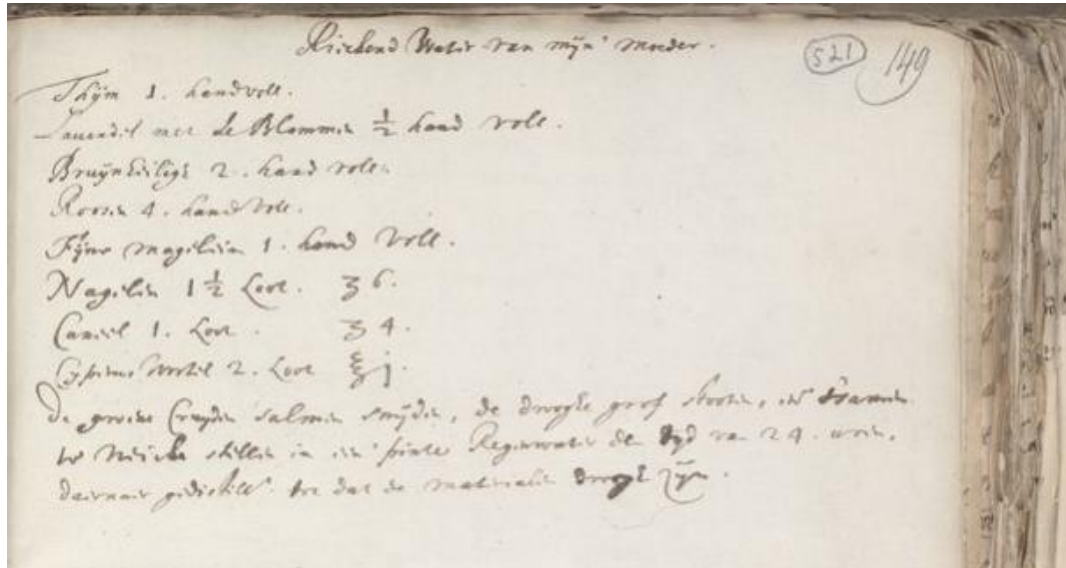 Riekend Water van mijn moeder. 521 149
Thijm 1. handvoll.
Lavendel met de Blommen ½ hand voll.
Bruijnheilige 2. hand voll.
Roosen 4. hand voll.
Fijne magelein 1. hand voll.
Nagelen 1 ½ Loot. ʒ 6.
Caneel 1. Loot. ʒ 4.
Cyperus wortel 2. Loot ℥j.
De groene Cruyden salmen snyden, de drooge grof stooten, en tsamen
te weicke stellen in een pinte Regenwater den tyd van 24. uren,
daernaer gedistill. tot dat de materialen droogh zyn.